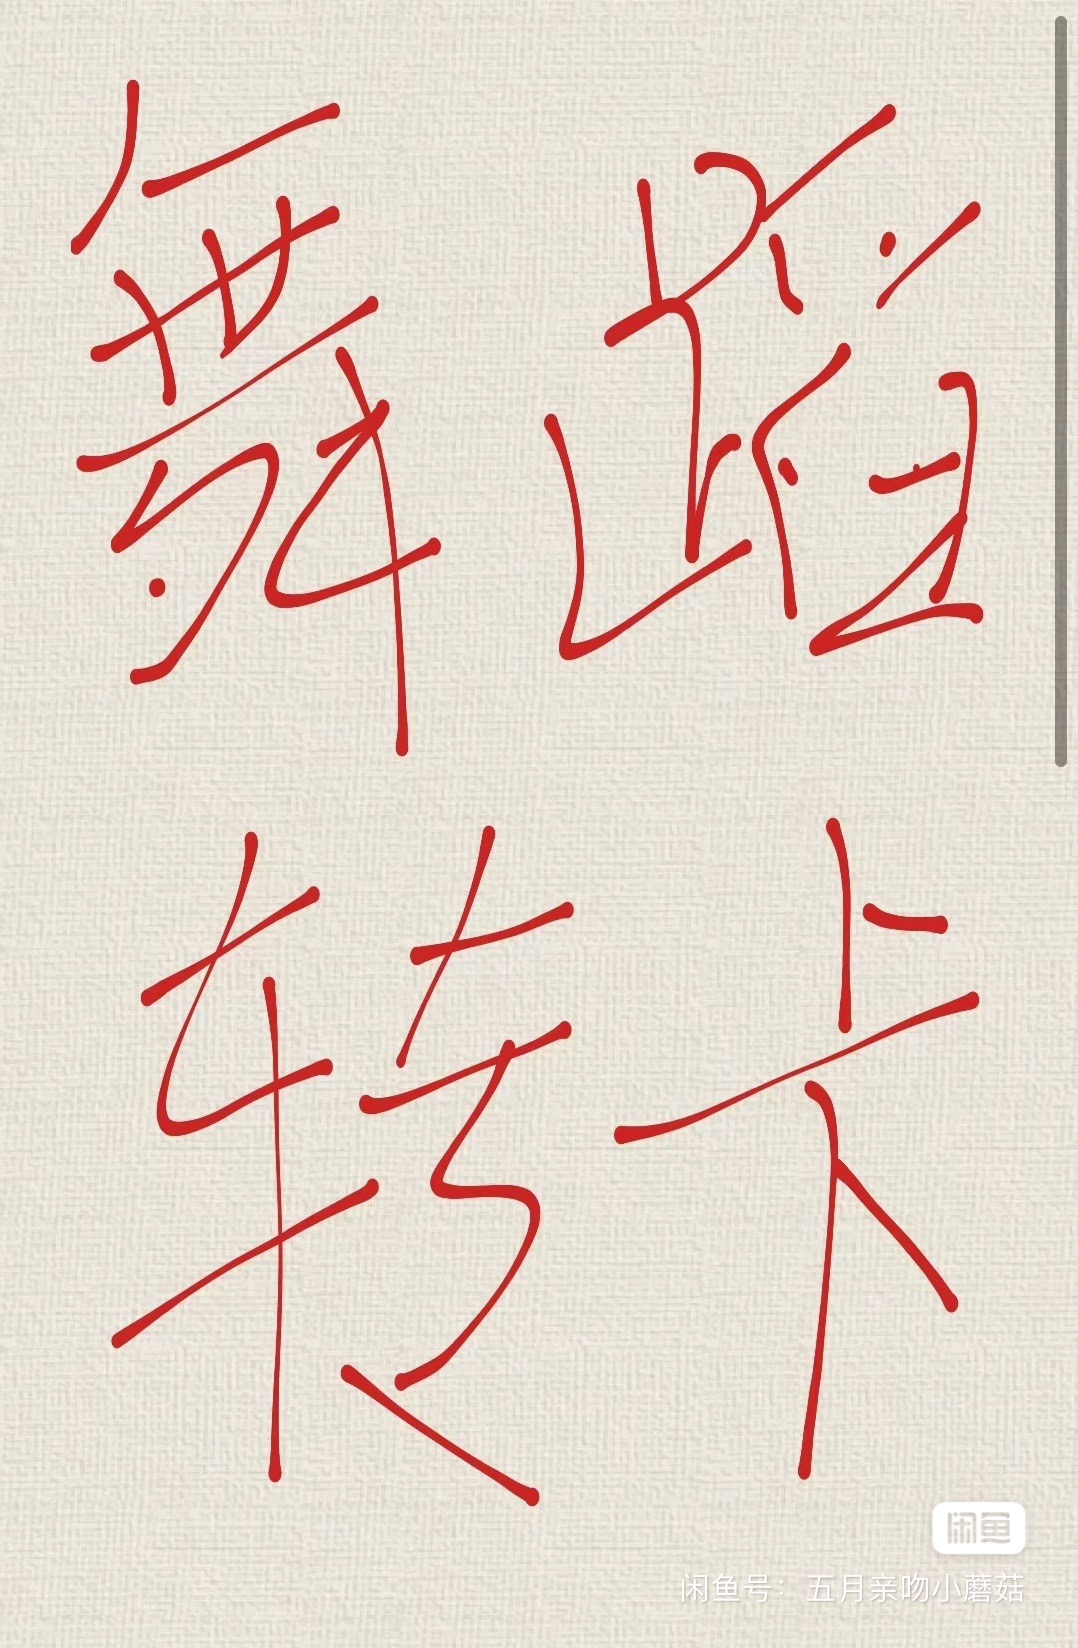 舞蹈
转卡
闲鱼
闲鱼号：五月亲吻小蘑菇